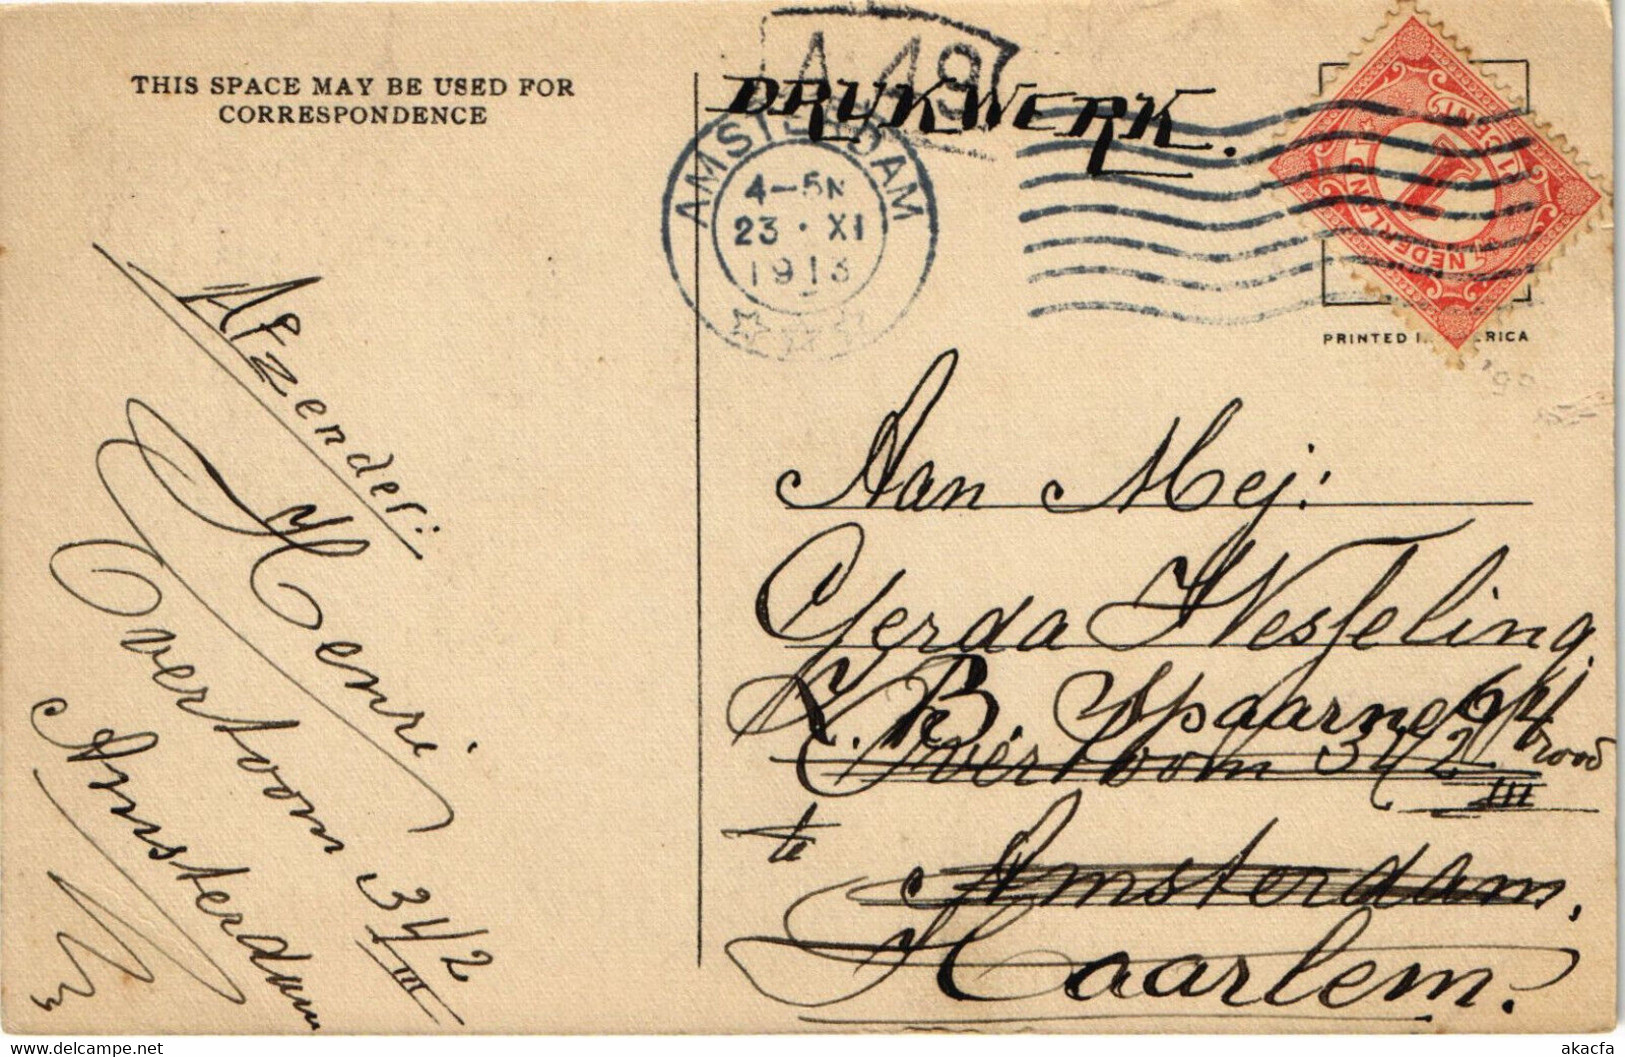 THIS SPACE MAY BE USED FOR
CORRESPONDENCE
A 49
DRUKWERK.
AMSTERDAM
4-5N
23 · XI
1913
1 CENT
NEDERLAND
1
PRINTED IN AMERICA
Afzender:
Henri
Overtoom 342
III
Amsterdam
Aan Mej:
Gerda Wesseling
B. Spaarne 64
rood
Overtoom 342
III
te
Amsterdam.
Haarlem.
akacfa